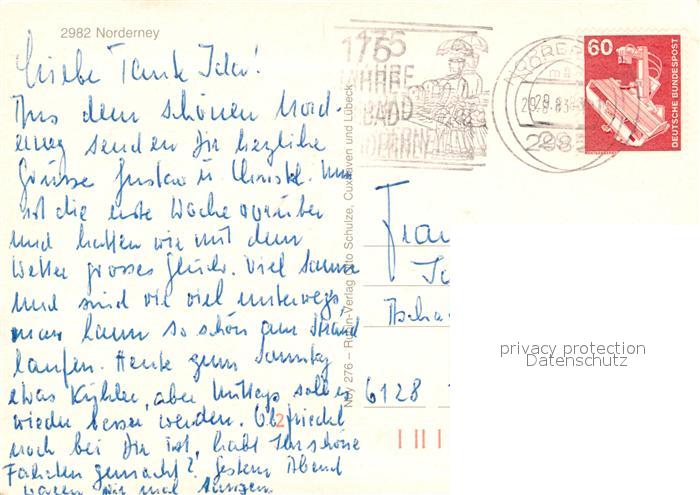 2982 Norderney
Liebe Tante Ida!
Aus dem schönen Nord-
erney senden Dir herzliche
Grüsse Gustav u. Christl. Nun
ist die erste Woche vorüber
und hatten wir mit dem
Wetter grosses Glück. Viel Sonne
und sind wir viel unterwegs
man kann so schön am Strand
laufen. Heute zum Sonntag
etwas Kühler, aber Mittags soll es
wieder besser werden. Ob Friedel
noch bei Dir ist, habt Ihr schöne
Fahrten gemacht? Gestern Abend
waren wir mal
175
JAHRE
BAD
NORDERNEY
2982
60
DEUTSCHE BUNDESPOST
Ney 276 – Rubin-Verlag Otto Schulze, Cuxhaven und Lübeck
Frau
6128
2
privacy protection
Datenschutz